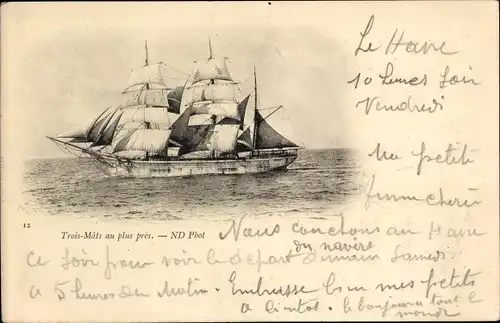 Le Havre
10 heures Soir
Vendredi
Ma petite
femme chérie
12
Trois-Mâts au plus près. — ND Phot
Nous couchons au Havre
ce Soir pour voir le depart du navire demain Samedi
a 5 heures du Matin. Embrasse bien mes petits
a bientot. le bonjour a tout le
monde